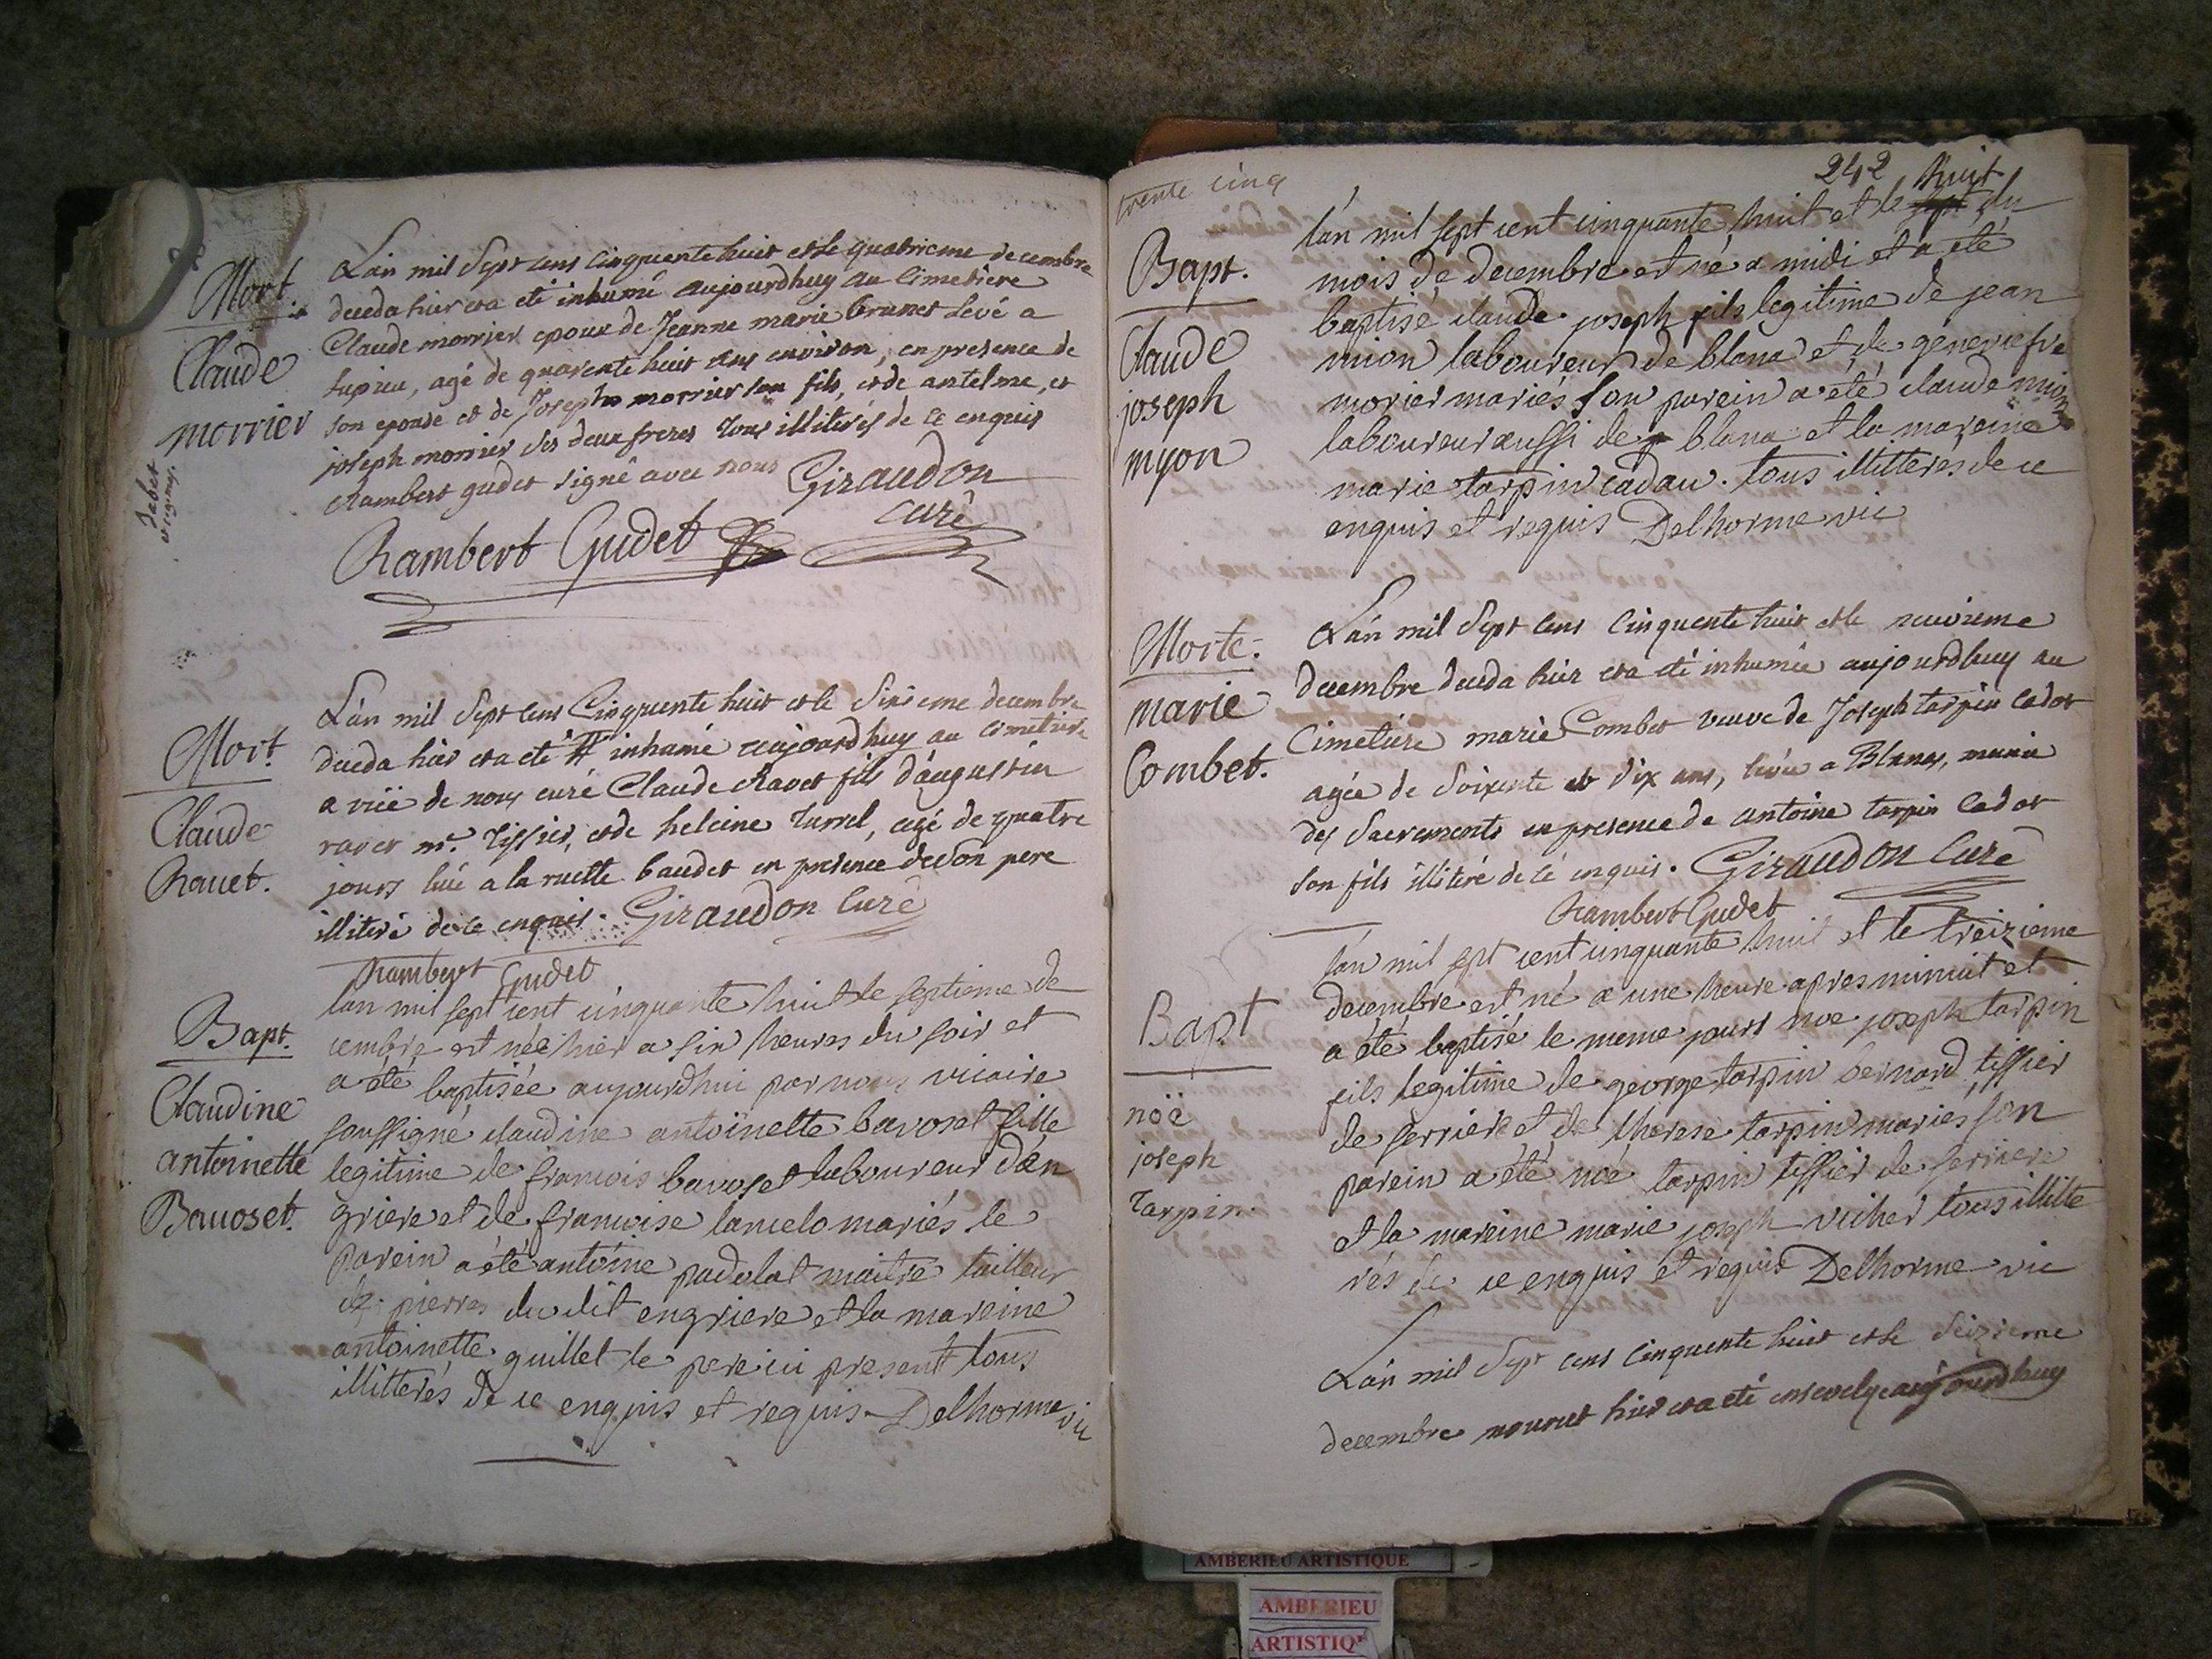 Mort.
Claude
morrier
L'an mil Sept cens Cinquente huit et le quatrieme decembre
deceda hier et a eté inhumé aujourdhuy au Cimetiere
Claude morrier epoux de Jeanne marie brunet levé a
agé de quarente huit ans environ, en presence de
son epouse et de Joseph morrier son fils, et de antelme, et
joseph morrier ses deux freres tous illiterés de ce enquis
Rambert gudet signé avec nous Giraudon
curé
Rambert Gudet
Mort
Claude
Rauet.
L'an mil Sept cens Cinquente huit et le Sixieme decembre
deceda hier et a eté inhumé aujourdhuy au cimetiere
a vüe de nous curé Claude Ravet fils d'augustin
ravet mr. tissier, et de heleine turrel, agé de quatre
jours levé a la ruette baudet en presence de son pere
illiteré de ce enquis. Giraudon Curé
Rambert Gudet
Bapt.
Claudine
antoinette
Bauoset.
lan mil sept cent cinquante huit le septieme de
cembre est née hier a six heures du soir et
a été baptisée aujourdhui par nous vicaire
soussigné claudine antoinette bavoset fille
legitime de francois bavoset laboureur d'en
griere et de francoise lancelo mariés le
parein a été antoine padolat maitre tailleur
de pierres du dit engriere et la mareine
antoinette guillet le pere ici present tous
illitterés de ce enquis et requis Delhorme vic
trente cinq
242
huit
Bapt.
Claude
joseph
myon
l'an mil sept cent cinquante huit et le sept du
mois de decembre est né a midi et a été
baptisé claude joseph fils legitime de jean
mion laboureur de blana et de geneviefve
morier mariés son parein a été claude mion
laboureur aussi de blana et la mareine
marie tarpin cadau. tous illitterés de ce
enquis et requis Delhorme vic
Morte.
marie
Combet.
L'an mil Sept cens Cinquente huit et le neuvieme
decembre deceda hier et a eté inhumée aujourdhuy au
Cimetiere marie Combet veuve de Joseph tarpin cador
agée de Soixente et dix ans, levée a Blanas, munie
des Sacrements en presence de antoine tarpin Cador
son fils illiteré de ce enquis. Giraudon Curé
Rambert Gudet
Bapt
nöë
joseph
Tarpin.
l'an mil sept cent cinquante huit et le treizieme
decembre est né a une heure apres minuit et
a été baptisé le meme jours noe joseph tarpin
fils legitime de george tarpin bernard tissier
de serriere et de therese tarpin mariés son
parein a été noé tarpin tissier de serriere
et la mareine marie joseph vicher tous illitte
rés de ce enquis et requis Delhorme vic
L'an mil Sept cens Cinquente huit et le Seizieme
decembre mourut hier et a eté ensevely aujourdhuy
AMBERIEU ARTISTIQUE
AMBERIEU
ARTISTIQ